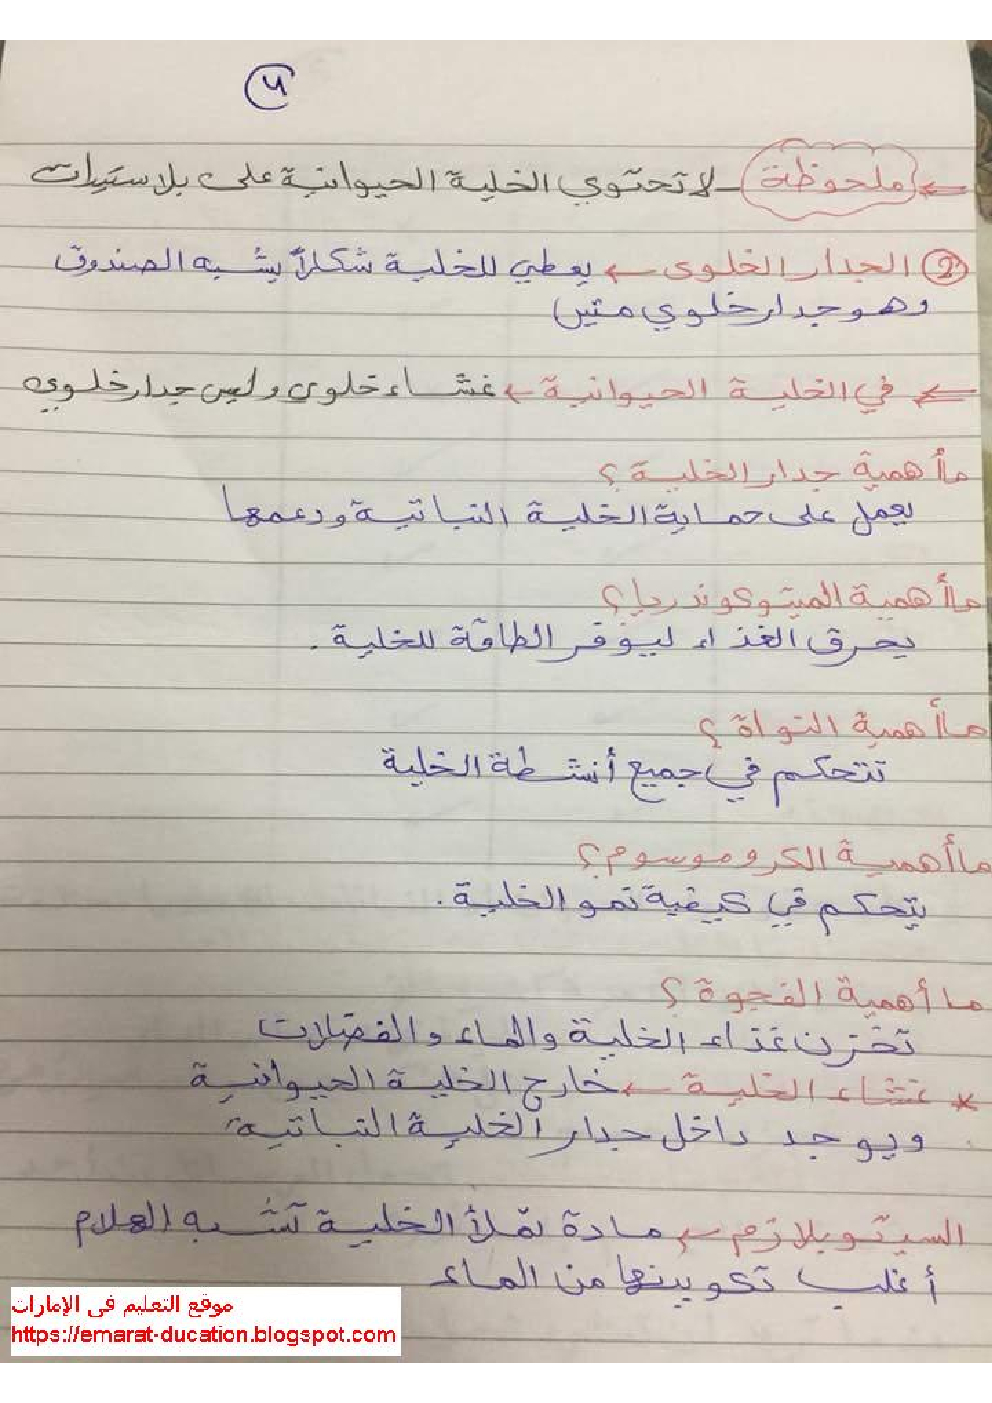 ٤
← ملحوظة - لا تحتوي الخلية الحيوانية على بلاستيدات
② الجدار الخلوى ← يعطي للخلية شكلاً يشبه الصندوق
وهو جدار خلوي متين
← في الخلية الحيوانية ← غشاء خلوى وليس جدار خلوي
ما أهمية جدار الخلية ؟
يعمل على حماية الخلية النباتية ودعمها
ما أهمية الميتوكوندريا ؟
يحرق الغذاء ليوفر الطاقة للخلية .
ما أهمية النواة ؟
تتحكم في جميع أنشطة الخلية
ما أهمية الكروموسوم ؟
يتحكم في كيفية نمو الخلية .
ما أهمية الفجوة ؟
تخزن غذاء الخلية والماء والفضلات
* غشاء الخلية ← خارج الخلية الحيوانية
ويوجد داخل جدار الخلية النباتية
السيتوبلازم ← مادة تملأ الخلية تشبه الهلام
أغلب تكوينها من الماء
موقع التعليم فى الإمارات
https://emarat-ducation.blogspot.com